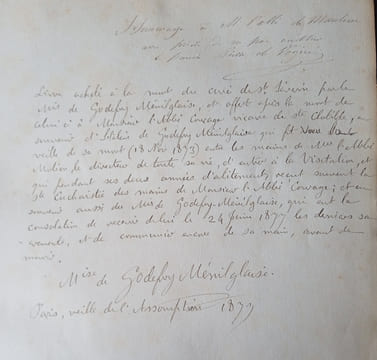 Hommage à M. l'abbé de
Livre acheté à la mort du curé de St Séverin par le
Mis de Godefoy Ménilglaise, et offert après la mort de
celui-ci à Monsieur l'Abbé Courage vicaire de Ste Clotilde, en
souvenir d' de Godefoy Ménilglaise qui fit vœu la
veille de sa mort (18 Nov 1873) entre les mains de Mr l'Abbé
le directeur de toute sa vie, d'entrer à la Visitation, et
qui pendant ses deux années d'alitement, reçut souvent la
Ste Eucharistie des mains de Monsieur l'Abbé Courage ; et en
souvenir aussi du Mis de Godefoy-Ménilglaise, qui eut la
consolation de recevoir de lui le 24 Juin 1877 les derniers sa-
crements, et de communier encore de sa main, avant de
mourir.
Mise de Godefoy Ménilglaise.
Paris, veille de l'Assomption 1879